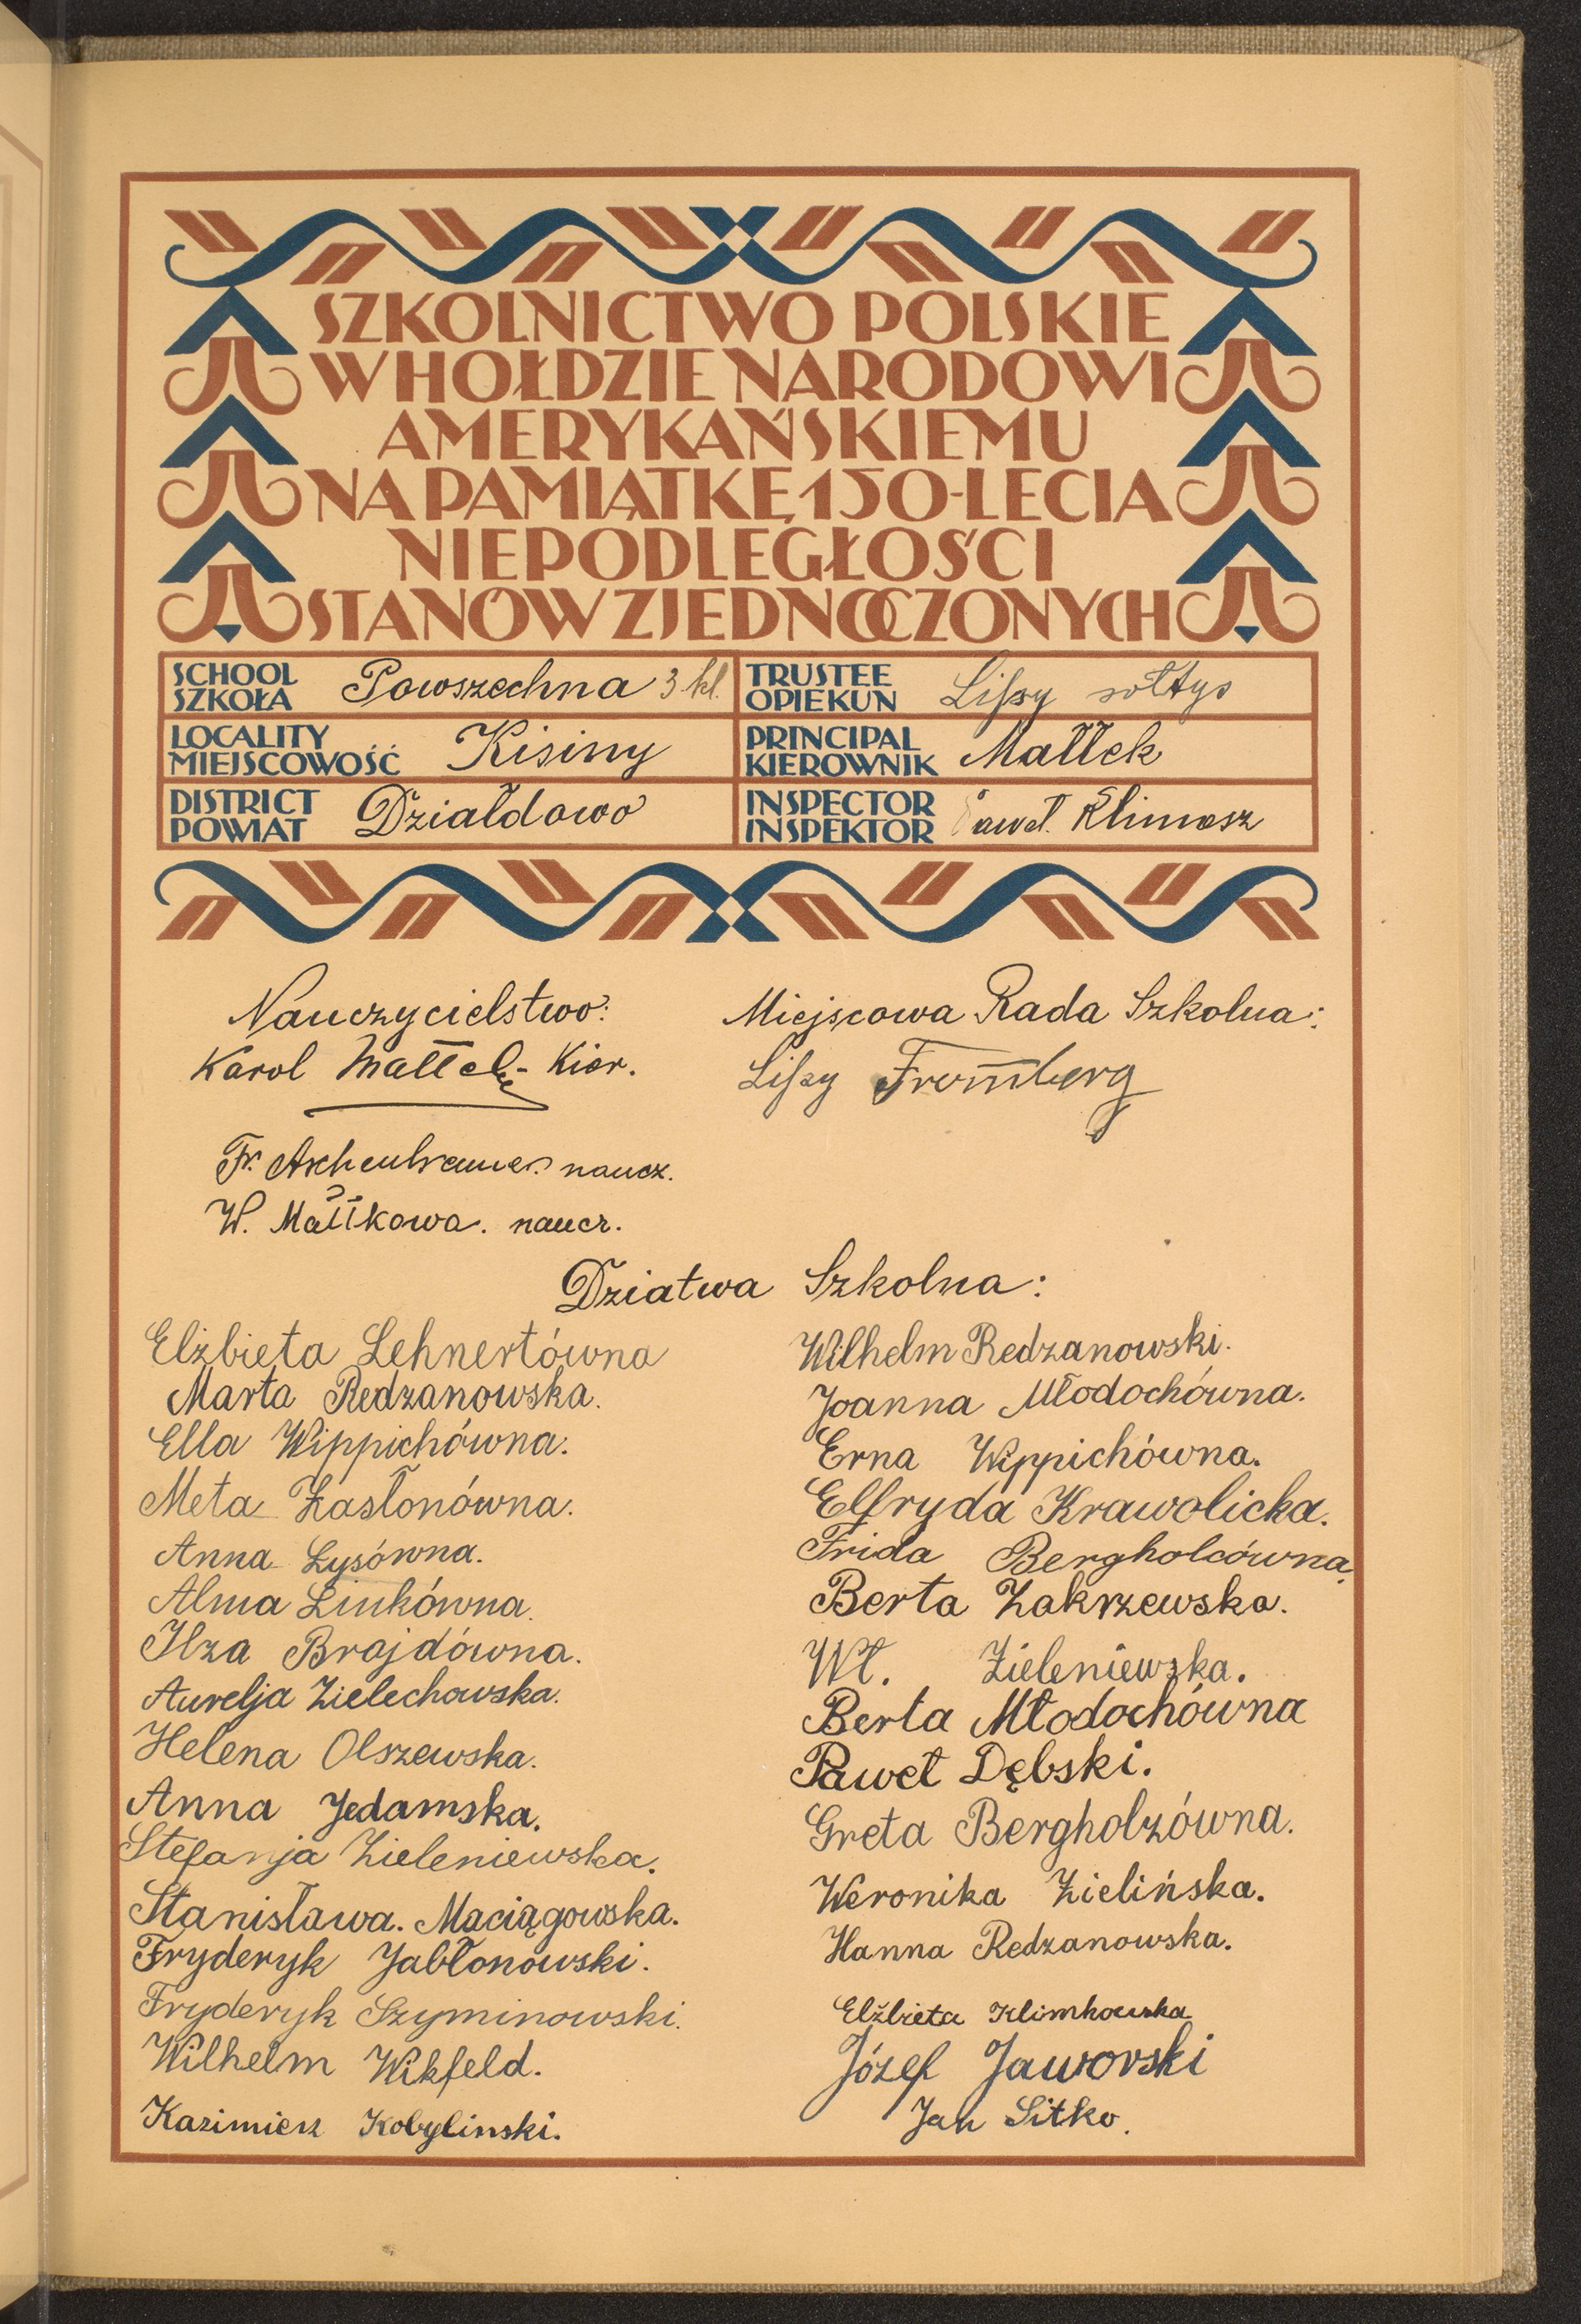 SZKOLNICTWO POLSKIE
W HOŁDZIE NARODOWI
AMERYKAŃSKIEMU
NA PAMIĄTKĘ 150-LECIA
NIEPODLEGŁOŚCI
STANÓW ZJEDNOCZONYCH
SCHOOL
SZKOŁA Powszechna 3 kl.
TRUSTEE
OPIEKUN Lißy sołtys
LOCALITY
MIEJSCOWOŚĆ Kisiny
PRINCIPAL
KIEROWNIK Małłek
DISTRICT
POWIAT Działdowo
INSPECTOR
INSPEKTOR Paweł Klimosz
Nauczycielstwo:
Karol Małłek - Kier.
Fr. naucz.
W. Małłkowa. naucz.
Miejscowa Rada Szkolna:
Lißy Fromberg
Dziatwa Szkolna:
Elżbieta Lehnertówna
Marta Redzanowska.
Ella Wippichówna.
Meta Zasłonówna.
Anna Łysówna.
Alma Linkówna.
Ilza Brajdówna.
Aurelja Zielechowska.
Helena Olszewska.
Anna Jedamska.
Stefanja Zieleniewska.
Stanisława. Maciągowska.
Fryderyk Jabłonowski.
Fryderyk Szyminowski.
Wilhelm Wikfeld.
Kazimierz Kobylinski.
Wilhelm Redzanowski.
Joanna Młodochówna.
Erna Wippichówna.
Elfryda Krawolicka.
Frida Bergholcówna.
Berta Zakrzewska.
Wł. Zieleniewska.
Berta Młodochówna
Paweł Dębski.
Greta Bergholzówna.
Weronika Zielińska.
Hanna Redzanowska.
Elżbieta Klimkowska
Józef Jaworski
Jan Sitko.